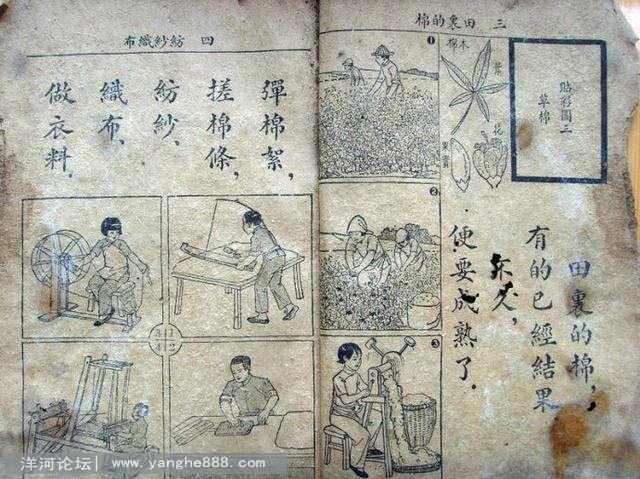 三 田裏的棉
貼彩圖三
草棉
木棉
葉
花
果實
田裏的棉,
有的已經結果,
不久,
便要成熟了.
1
2
3
四 紡紗織布
彈棉絮,
搓棉條,
紡紗,
織布,
做衣料.
3 1
4 2
洋河论坛| www.yanghe888.com